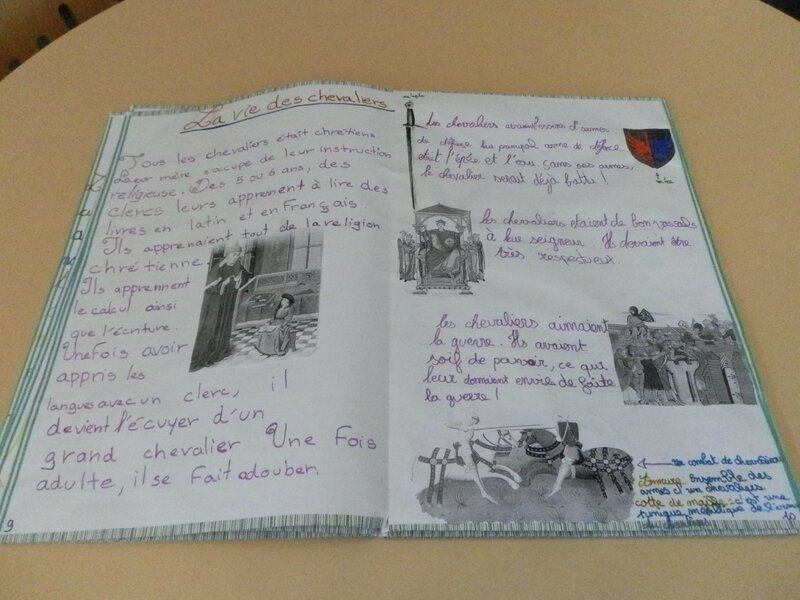 La vie des chevaliers
Tous les chevaliers était chrétiens
Leur mère s'accupe de leur instruction
religieuse. Des 5 ou 6 ans, des
clercs leurs apprenent à lire des
livres en latin et en Français.
Ils apprenaient tout de la religion
chrétienne.
Ils apprennent
le calcul ainsi
que l'écriture.
Une Fois avoir
appris les
langues avec un clerc, il
devient l'écuyer d'un
grand chevalier Une Fois
adulte, il se Fait adouber.
9
Les chevaliers avaient d'armes
de défence. arme de défence
était l'épée et sans ses armes,
le chevalier serait déjà battu !
les chevaliers étaient de bon vassals
à leur seigneur. Ils devaient être
très respectueux.
les chevaliers aimaient
la guerre. Ils avaient
soif de pouvoir, ce qui
leur donnaient envie de faite
la guerre !
un combat de chevaliers
Armure. Ensemble des
armes d'un chevaliers.
cotte de maille : c'est une
tunique métalique de
10